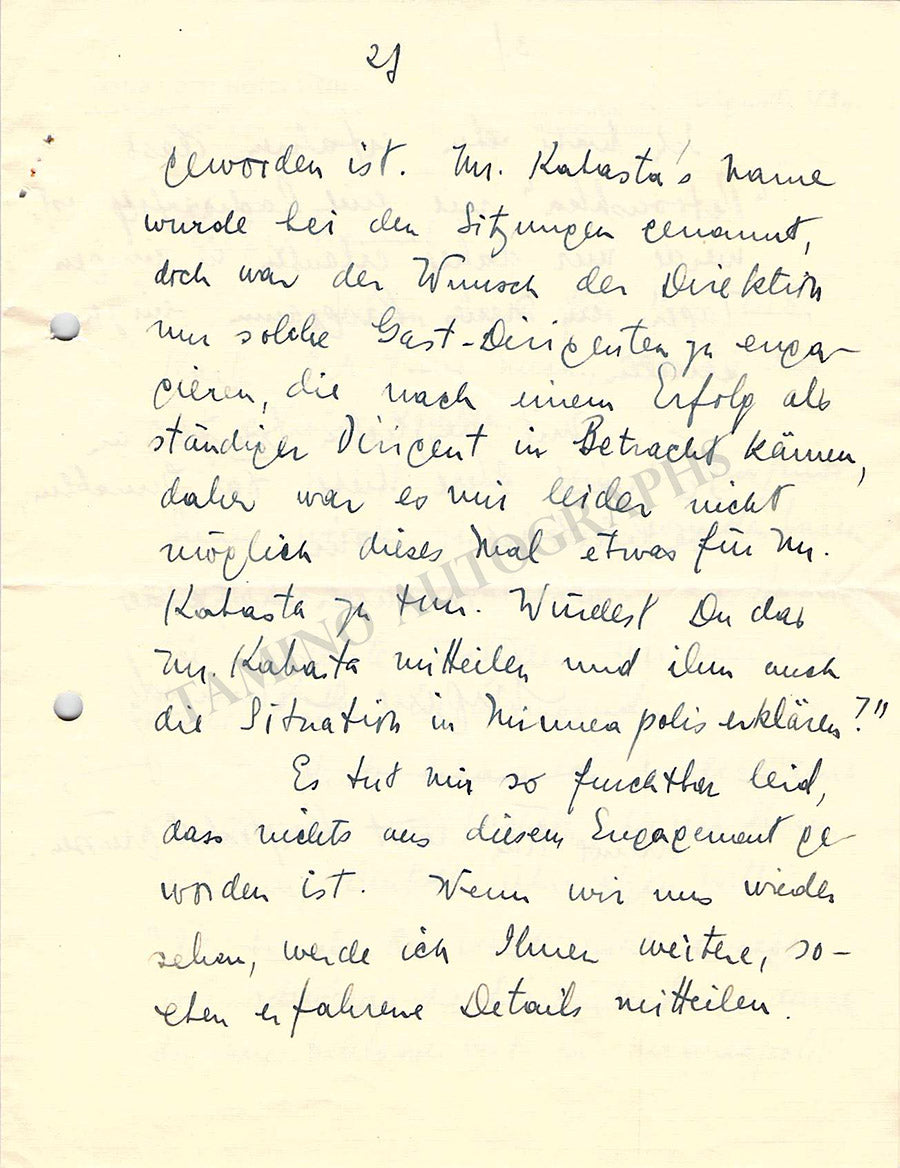 2/
geworden ist. Mr. Kabasta's Name
wurde bei den Sitzungen genannt,
doch war der Wunsch der Direktion
nur solche Gast-Dirigenten zu enga-
gieren, die nach einem Erfolg als
ständiger Dirigent in Betracht kämen,
daher war es mir leider nicht
möglich dieses Mal etwas für Mr.
Kabasta zu tun. Würdest Du das
Mr. Kabasta mitteilen und ihm auch
die Situation in Minneapolis erklären?"
Es tut mir so furchtbar leid,
dass nichts aus diesem Engagement ge-
worden ist. Wenn wir uns wieder
sehen, werde ich Ihnen weitere, so-
eben erfahrene Details mitteilen.
TAMINO AUTOGRAPHS